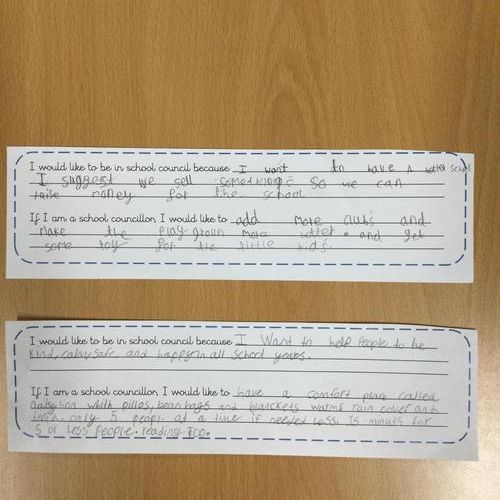 I would like to be in school council because I want to have a better school
I suggest we sell something so we can
raise money for the school
If I am a school councillor, I would like to add more clubs and
make the play groun more and get
some toy for the little kids
I would like to be in school council because I Want to help People to be
kind, calm, safe and happy in all School years.
If I am a school councillor, I would like to have a comfort place called
whith pillos, bean bags and blanckets warmt rain cover and
only 5 peopl at a time if needed Less. 15 minuts for
5 or less people. reading too.